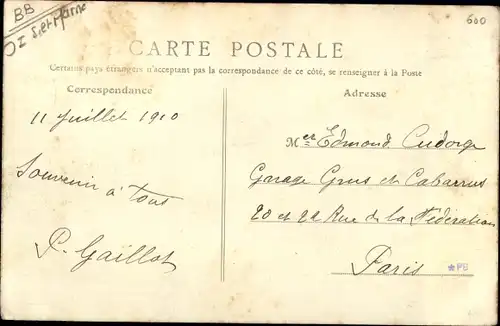 BB
OI S. et Marne
600
CARTE POSTALE
Certains pays étrangers n'acceptant pas la correspondance de ce côté, se renseigner à la Poste
Correspondance
Adresse
11 Juillet 1910
Souvenir à Tous
P. Gaillot
Mer Edmond Cudorge
Garage Grus et Cabarrus
20 et 22 Rue de la Fédération
Paris
*PB